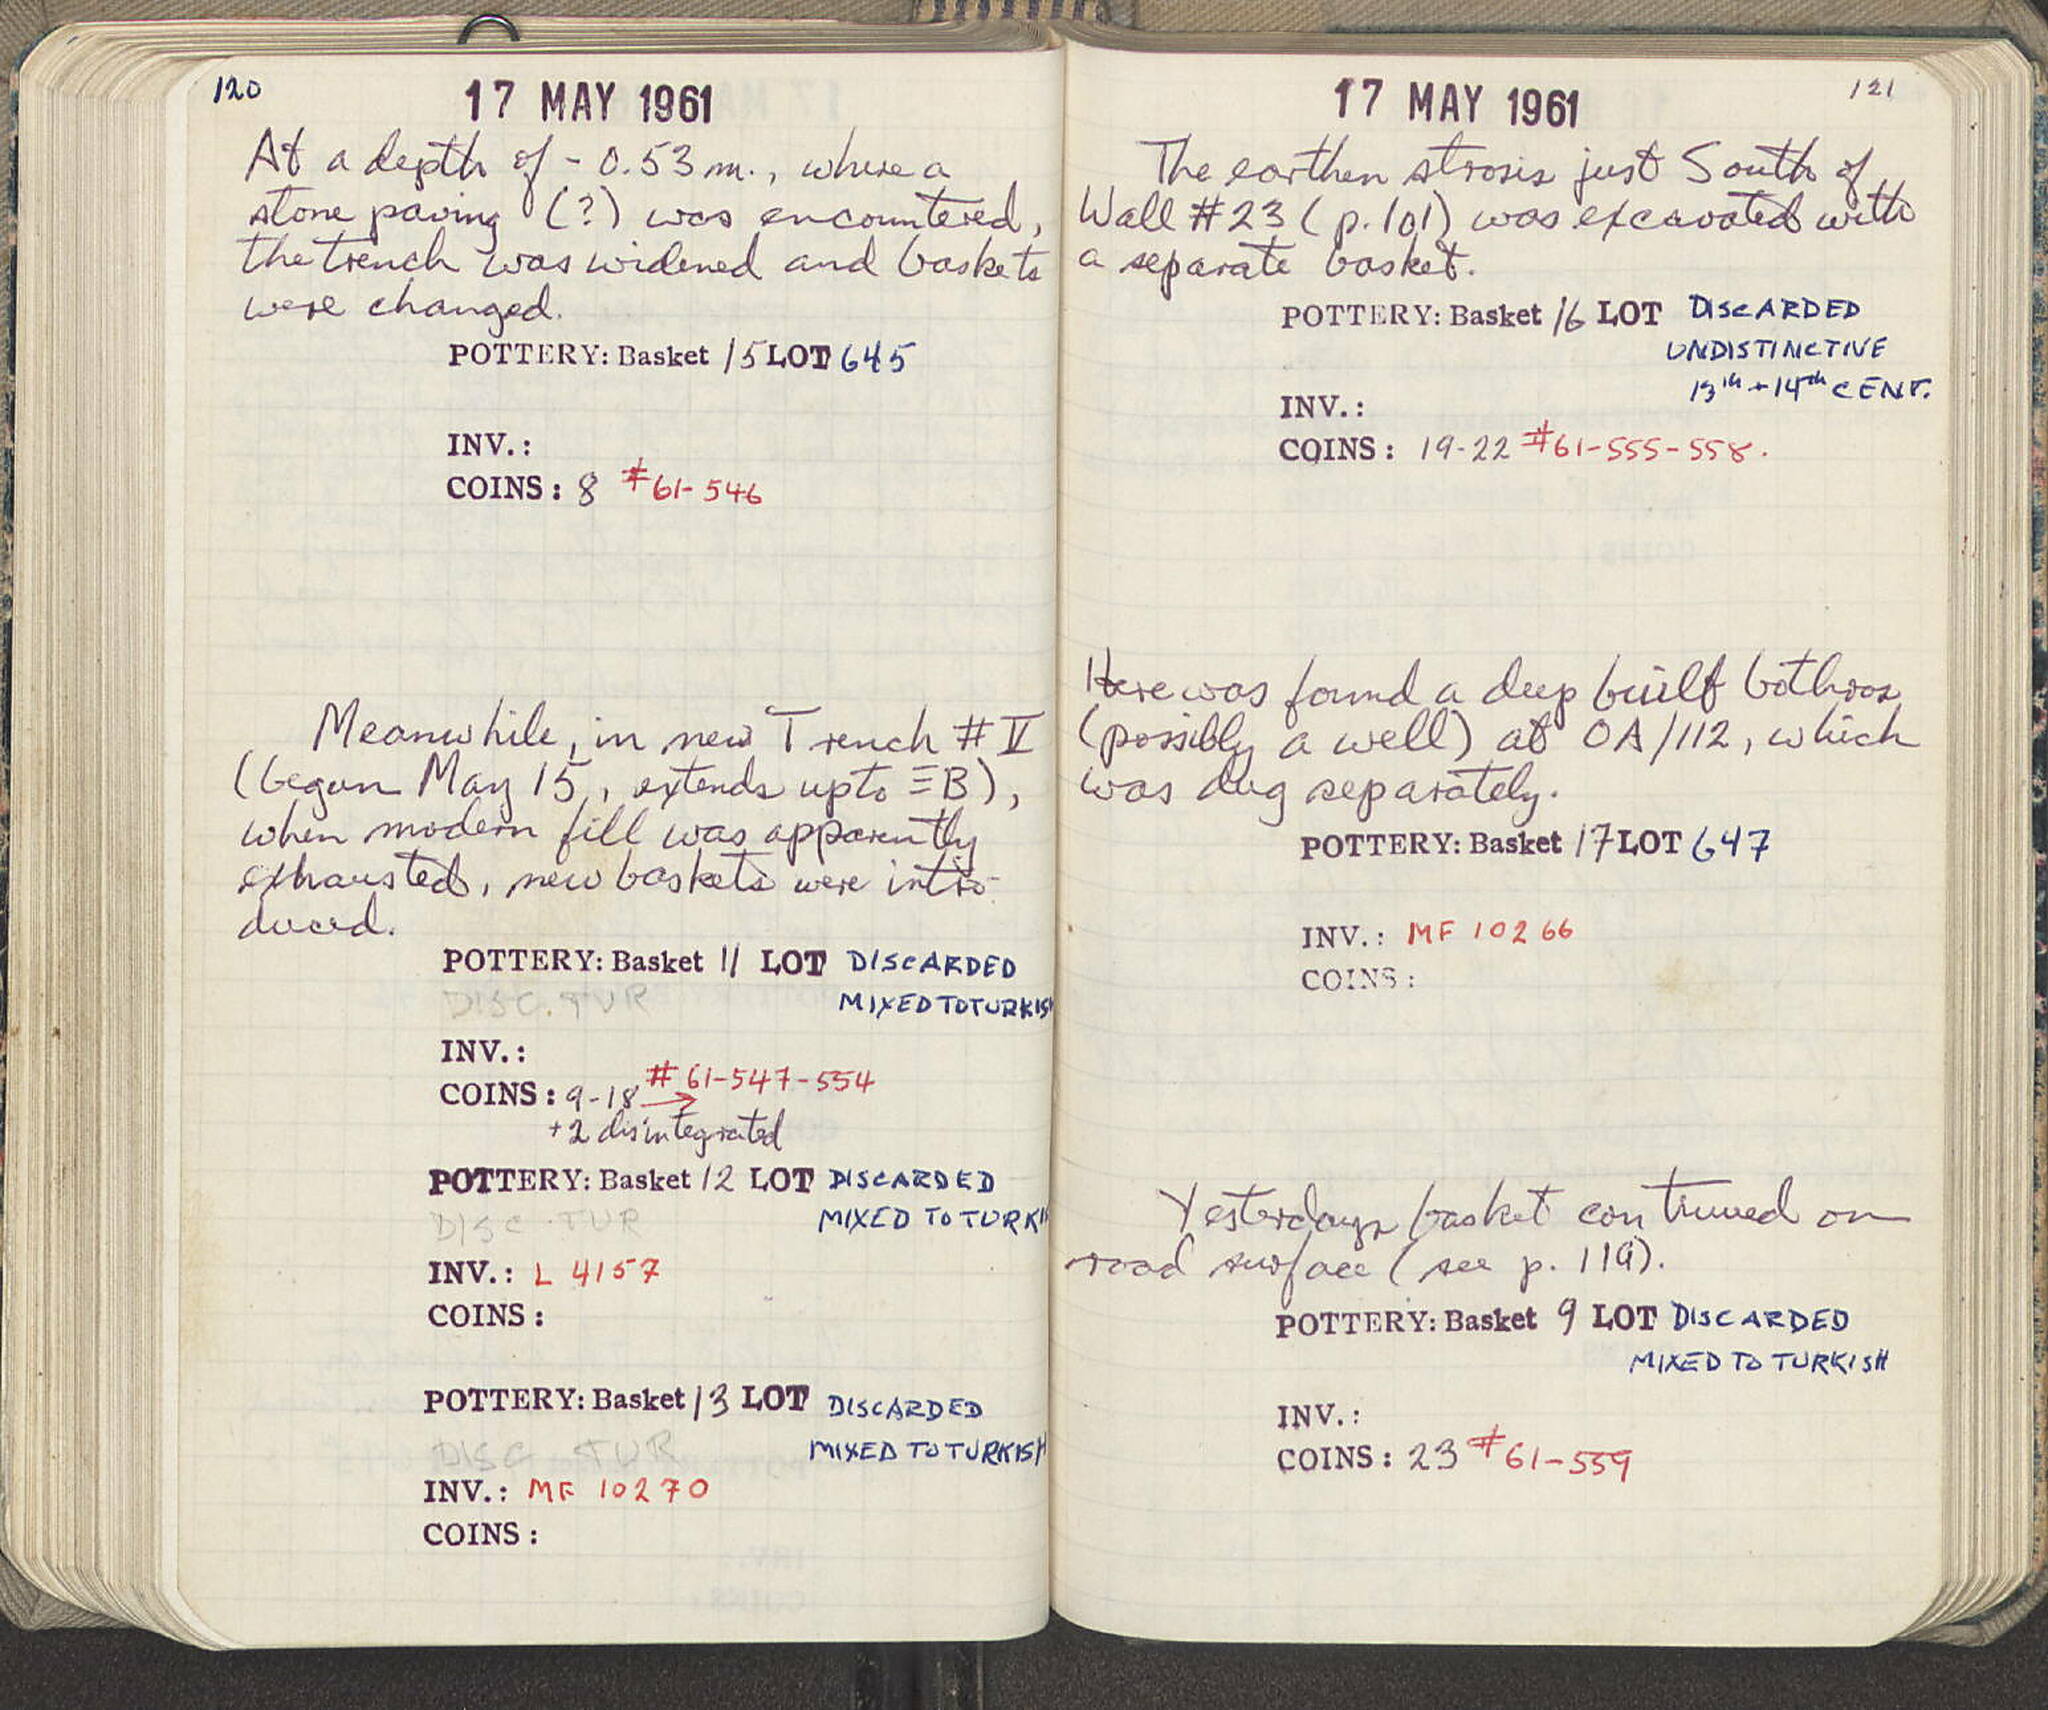 120
17 MAY 1961
At a depth of - 0.53 m., where a
stone paving (?) was encountered,
the trench was widened and baskets
were changed.
POTTERY: Basket 15 LOT 645
INV.:
COINS: 8 #61-546
Meanwhile, in new Trench # V
(begun May 15, extends up to ΞB),
when modern fill was apparently
exhausted, new baskets were intro-
duced.
POTTERY: Basket 11 LOT DISCARDED
DISC. TUR MIXED TO TURKISH
INV.:
COINS: 9-18 → # 61-547-554
+2 disintegrated
POTTERY: Basket 12 LOT DISCARDED
DISC. TUR MIXED TO TURKI
INV.: L 4157
COINS:
POTTERY: Basket 13 LOT DISCARDED
DISC TUR MIXED TO TURKISH
INV.: MF 10270
COINS:
121
17 MAY 1961
The earthen strosis just South of
Wall #23 (p. 101) was excavated with
a separate basket.
POTTERY: Basket 16 LOT DISCARDED
UNDISTINCTIVE
13th + 14th CENT.
INV.:
COINS: 19-22 #61-555-558.
Here was found a deep built bothros
(possibly a well) at OA/112, which
was dug separately.
POTTERY: Basket 17 LOT 647
INV.: MF 10266
COINS:
Yesterdays basket continued on
road surface (see p. 119).
POTTERY: Basket 9 LOT DISCARDED
MIXED TO TURKISH
INV.:
COINS: 23 #61-559